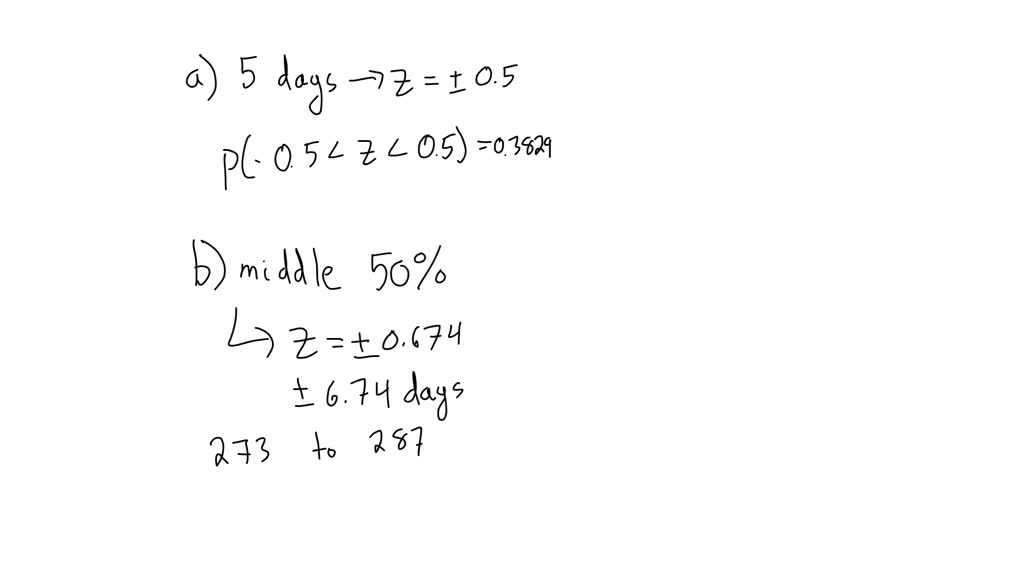 a) 5 days → z = ± 0.5
P(-0.5 < z < 0.5) = 0.3829
b) middle 50%
↳ z = ± 0.674
± 6.74 days
273 to 287